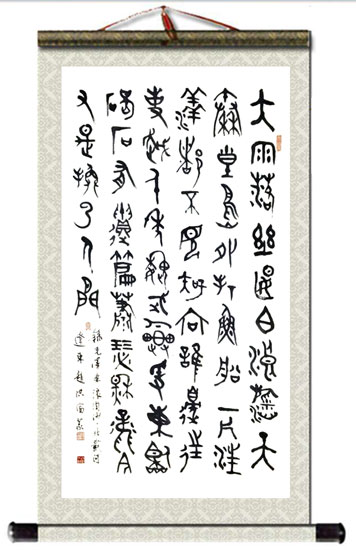 大雨落幽燕白浪滔天
秦皇島外打魚船一片汪
洋都不見知向誰邊往
事越千年魏武揮鞭東臨
碣石有遺篇蕭瑟秋風今
又是換了人間